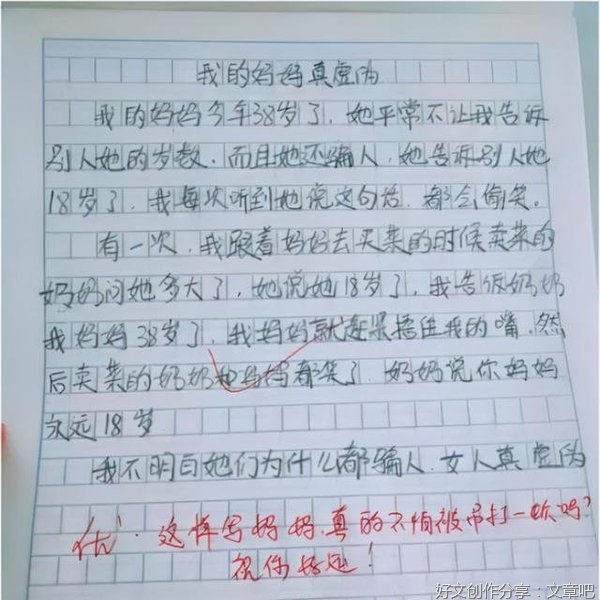 我的妈妈真虚伪
我的妈妈今年38岁了，她平常不让我告诉
别人她的岁数.而且她还骗人.她告诉别人她
18岁了，我每次听到她说这句话.都会偷笑。
有一次.我跟着妈妈去买菜的时候卖菜的
奶奶问她多大了，她说她18岁了，我告诉奶奶
我妈妈38岁了，我妈妈就赶紧捂住我的嘴.然
后卖菜的奶奶和妈妈都笑了.奶奶说你妈妈
永远18岁
我不明白她们为什么都骗人.女人真虚伪
优.这样写妈妈.真的不怕被吊打一顿吗?
祝你好运!
好文创作分享：文章吧